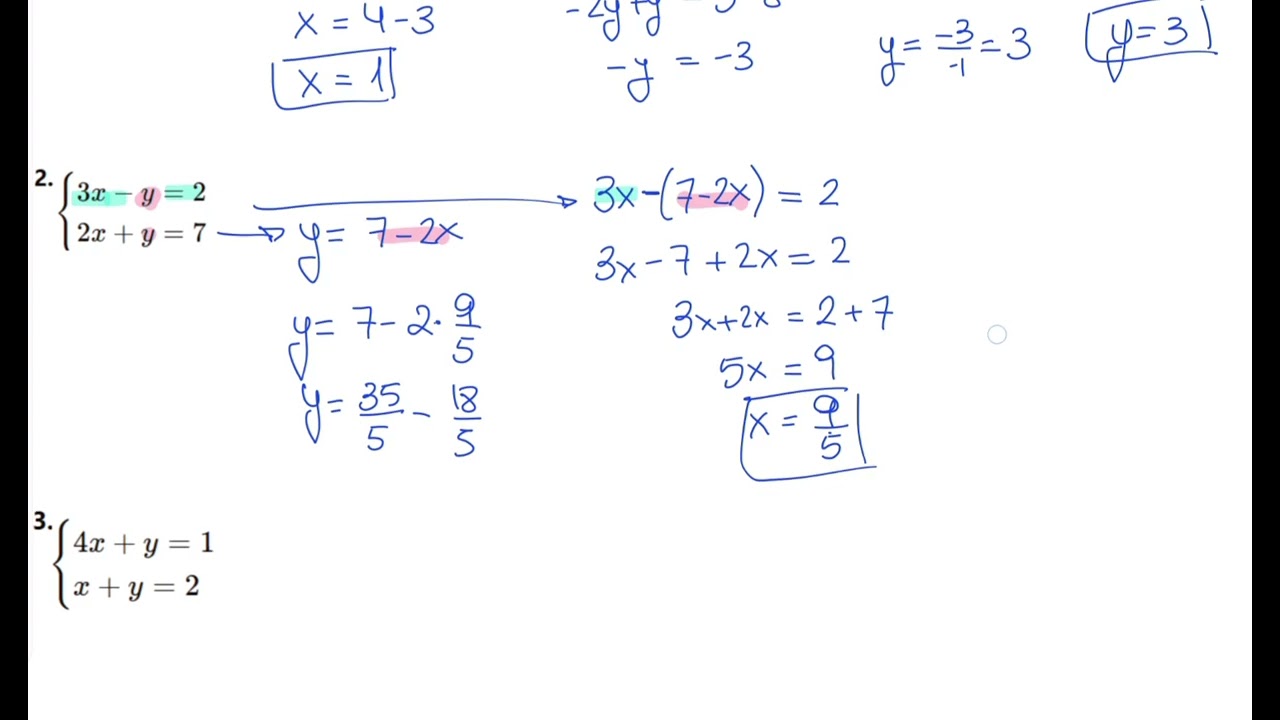 x = 4-3
x = 1
-y = -3
y = -3/-1 = 3
y = 3
2. {3x − y = 2
2x + y = 7
y = 7-2x
y = 7-2·9/5
y = 35/5 - 18/5
3x-(7-2x) = 2
3x-7+2x = 2
3x+2x = 2+7
5x = 9
x = 9/5
3. {4x + y = 1
x + y = 2